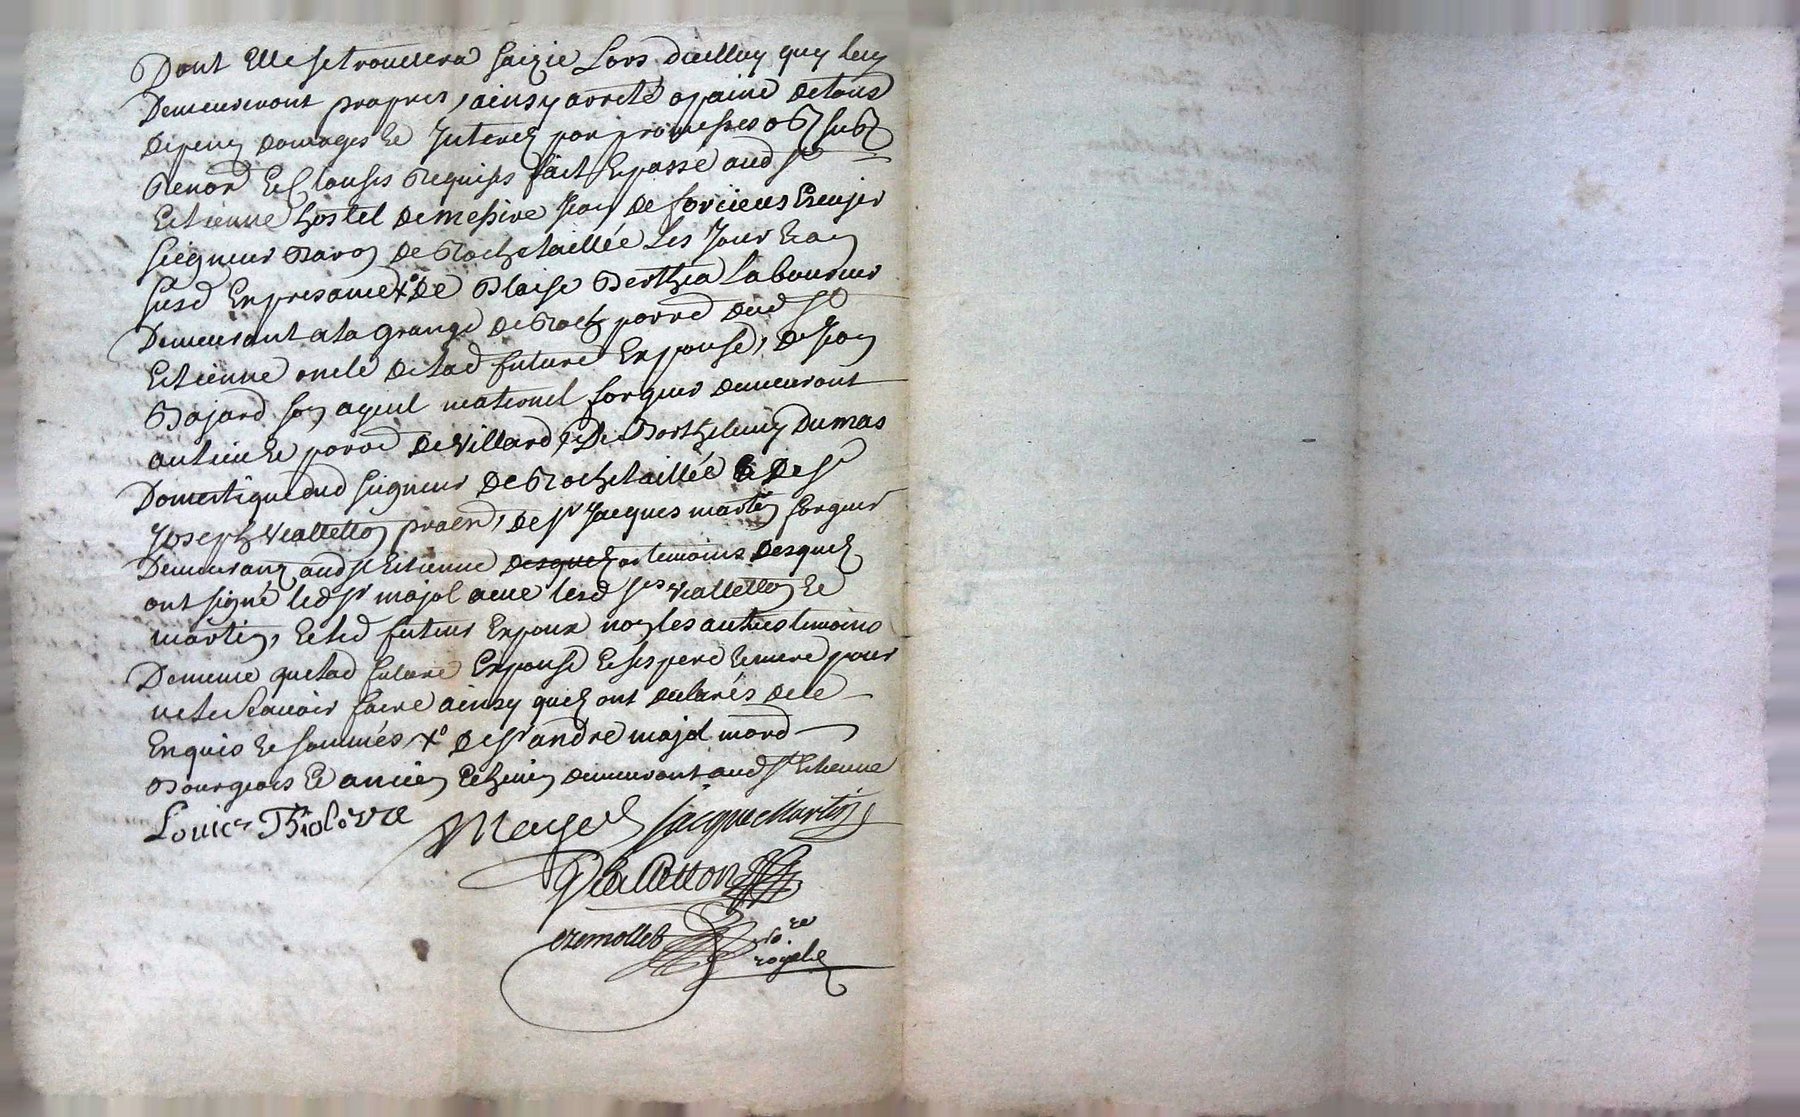 Dont Elle se trouvera Saizie Lors dicelluy quy luy
Demeureront propres, ainsy arreté apaine de tous
depens domages Et Interez par promesses obl subon
Renon Et Clauses Requises fait Et passé aud St
Estienne hostel de messire Jean de forcieux Escuyer
seigneur Baron de Rochetaillée Les Jour Et an
susd En presance xº de Blaise Berthea Laboureur
Demeurant a la grange de Roch parre dud St
Estienne oncle de lad future Expouse, de Jean
Bajard son ayeul maternel forgeur demeurant
au lieu Et parre de Villard, Et De Barthelemy Dumas
Domestique dud seigneur de Rochetaillée & De Sr
Joseph Vialletton praen, de Sr Jacques martin forgeur
Demeurans aud St Estienne temoins Desquels
ont signé led Sr majol avec lesd Srs Vialletton Et
martin, Et led futeur Expoux non les autres temoins
De meme que lad future Expouse Et ses pere Et mere pour
ne le Scavoir faire ainsy quilz ont declarés de ce
Enquis Et sommés, xº De Sr andré majol mard
Bourgeois Et ancien Echevin demeurant aud St Etienne
Louis Thiolière Mayol Jacque Martin
Vialletton
ezemolles no.re
royal